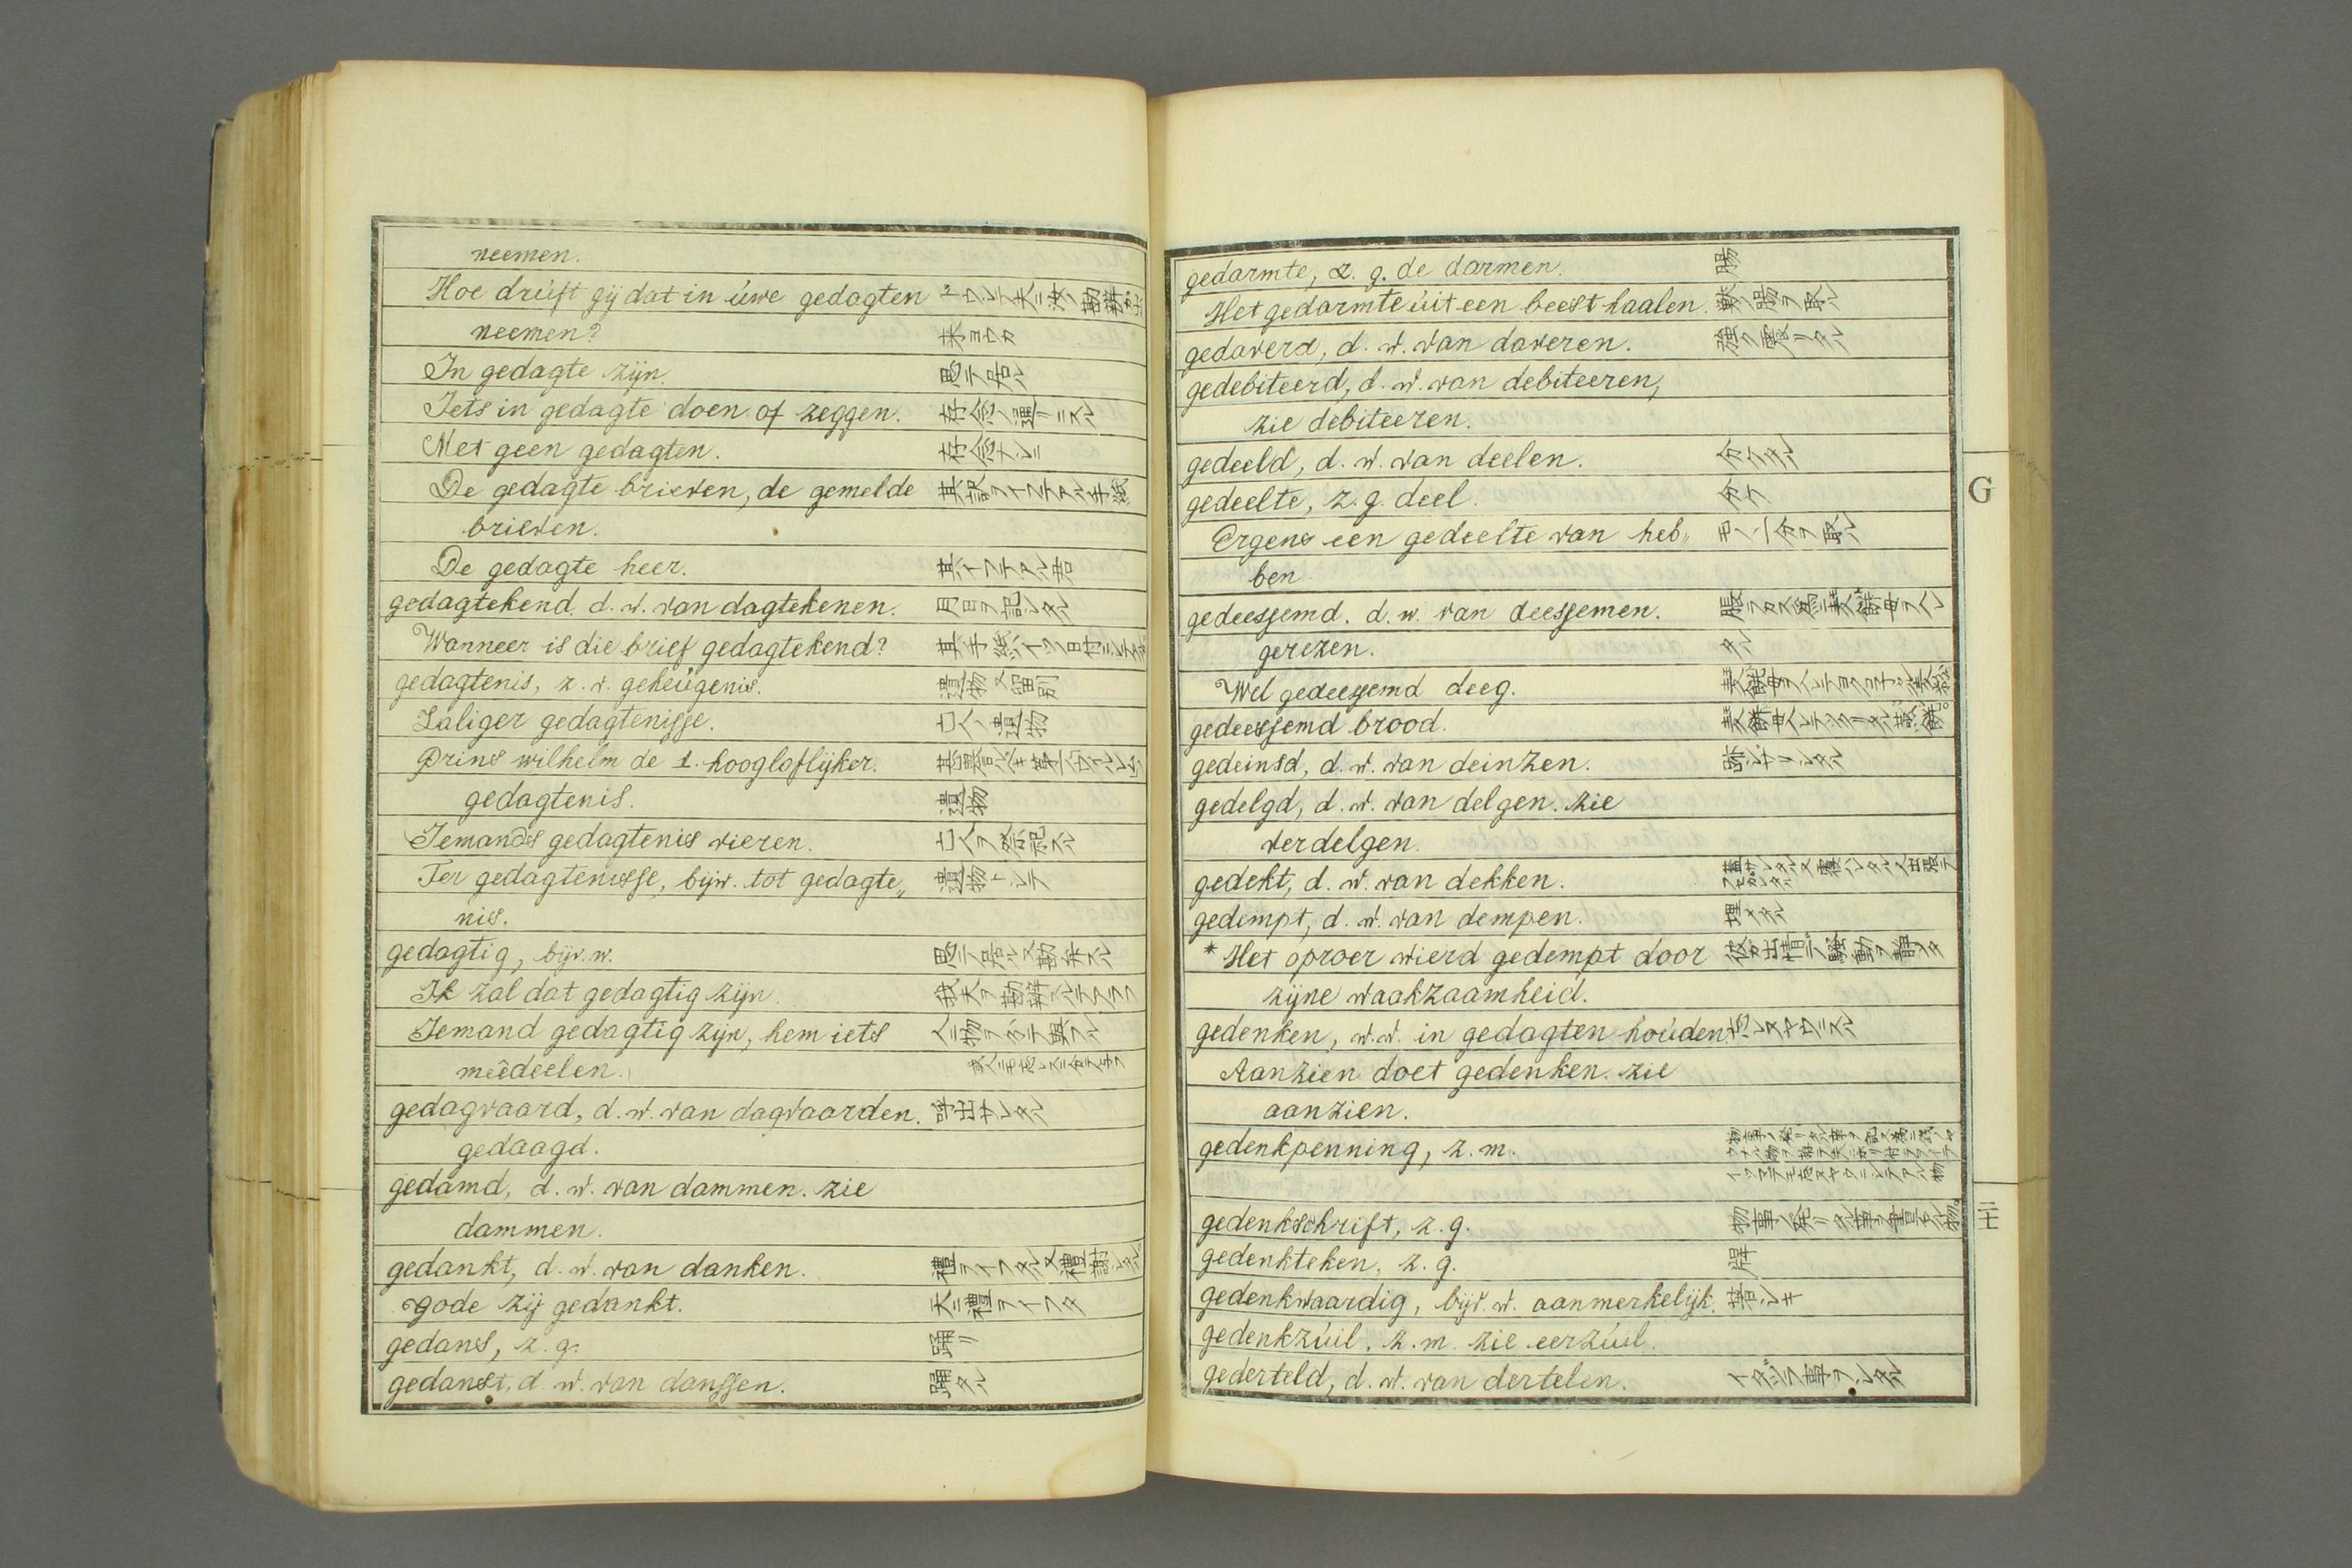 neemen.
Hoe drúft gij dat in úwe gedagten
neemen? 来ヨウカ
In gedagte zijn. 思テ居ル
Iets in gedagte doen of zeggen. 存念ノ通リニスル
Met geen gedagten. 存念ナシニ
De gedagte brieven, de gemelde 其訳ヲイフテアル手紙
brieven.
De gedagte heer. 其イフテアル君
gedagtekend. d. w. van dagtekenen. 月日ヲ記シタル
Wanneer is die brief gedagtekend?
gedagtenis, z. v. geheúgenis. 遺物又留別
Zaliger gedagtenisse. 亡人ノ遺物
Prins wilhelm de 1. hoogloflijker.
gedagtenis. 遺物
Iemands gedagtenis vieren. 亡人ヲ祭祀スル
Ter gedagtenisse, bijw. tot gedagte„ 遺物トシテ
nis.
gedagtig, bijv. w. 思テ居ル又勘弁スル
Ik zal dat gedagtig zijn. 我夫ヲ勘辨
Iemand gedagtig zijn, hem iets
meêdeelen.
gedagvaard, d. w. van dagvaarden. 呼出サレタル
gedaagd.
gedamd, d. w. van dammen. zie
dammen.
gedankt, d. w. van danken. 禮ヲイフタル又禮謝シタル
gode zij gedankt. 天ニ禮ヲイフタ
gedans, z. g. 踊リ
gedanst, d. w. van danssen. 踊タル
gedarmte, z. g. de darmen. 腸
Het gedarmte úit een beest haalen. 獣ノ腸ヲ取ル
gedaverd, d. w. van daveren. 強ク震リタル
gedebiteerd, d. w. van debiteeren,
zie debiteeren.
gedeeld, d. w. van deelen. 分ケタル
gedeelte, z. g. deel. 分ケ
Ergens een gedeelte van heb„ 一分ヲ取ル
ben
gedeessemd. d. w. van deessemen.
gerezen. タル
Wel gedeessemd deeg.
gedeessemd brood.
gedeinsd, d. w. van deinzen. 跡シサリシタル
gedelgd, d. w. van delgen. zie
verdelgen.
gedekt, d. w. van dekken.
gedempt, d. w. van dempen. 埋メタル
* Het oproer wierd gedempt door 騒動ヲ静メタ
zijne waakzaamheid.
gedenken, w. w. in gedagten hoúden 忘レヌヤウニスル
Aanzien doet gedenken. zie
aanzien.
gedenkpenning, z. m.
gedenkschrift, z. g.
gedenkteken, z. g. 牌
gedenkwaardig, bijv. w. aanmerkelijk. 著シキ
gedenkzúil. z. m. zie eerzúil.
gederteld, d. w. van dertelen. イタヅラ事ヲシタル
G